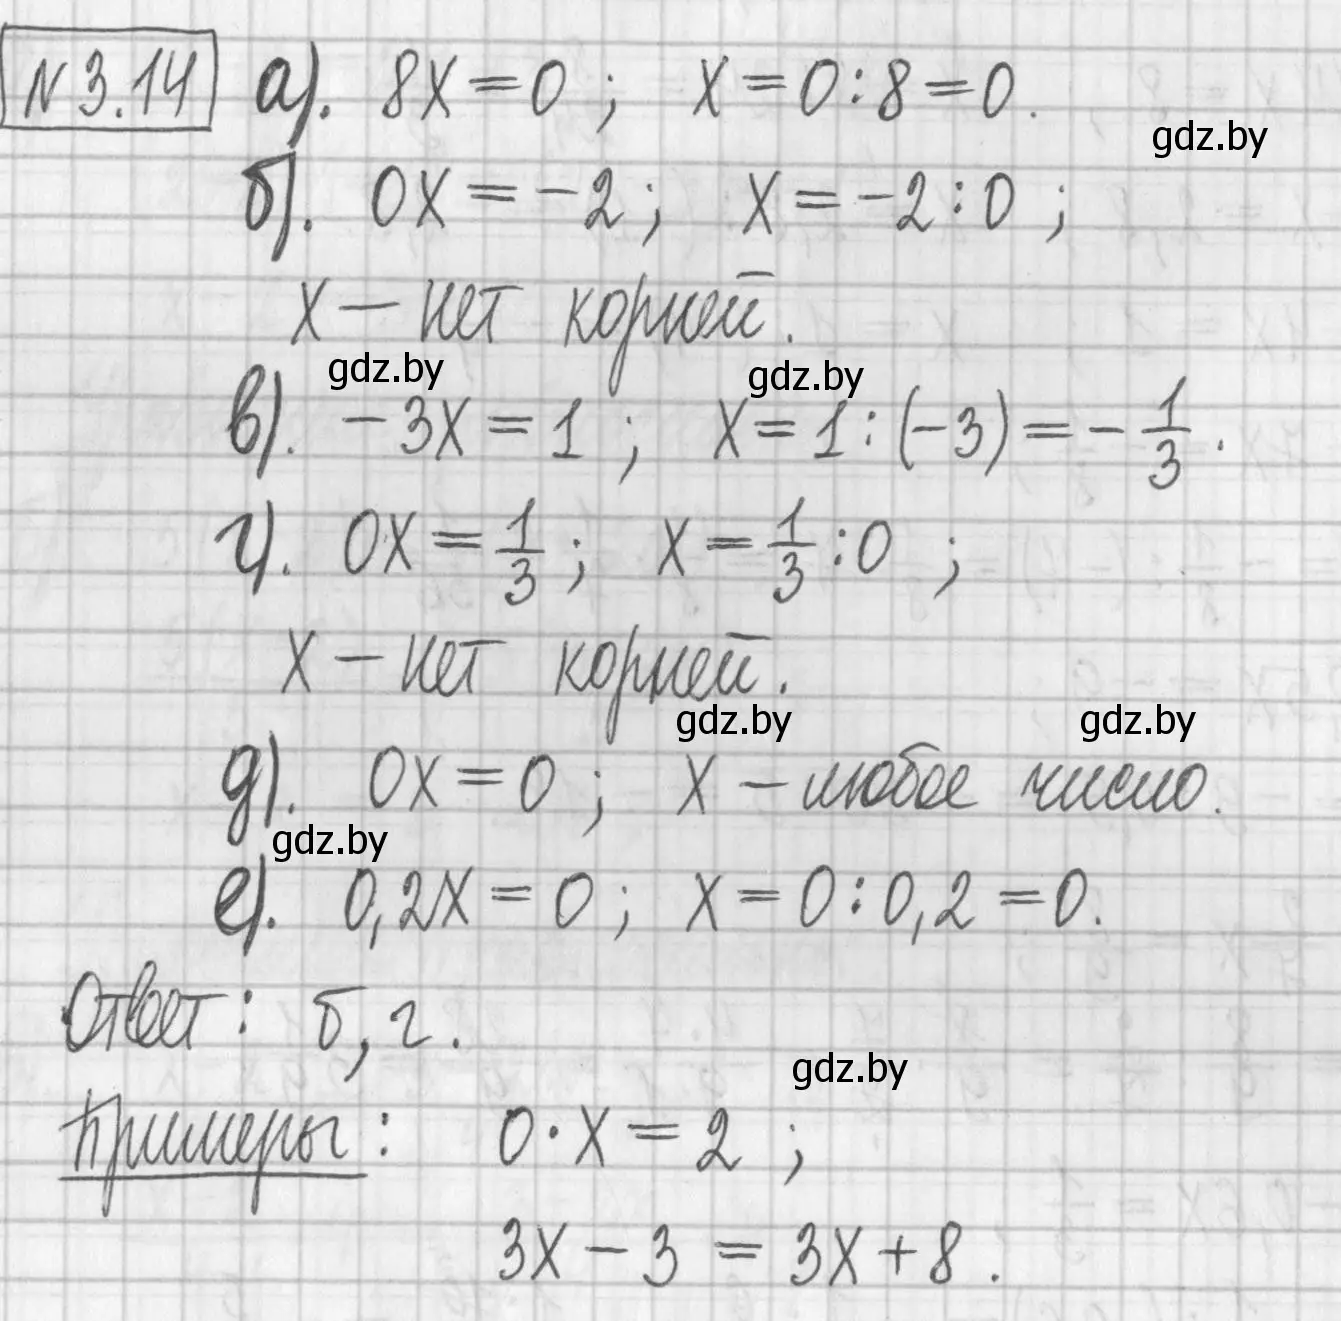 №3.14 а). 8x = 0 ; x = 0 : 8 = 0.
gdz.by
б). 0x = -2 ; x = -2 : 0 ;
x - нет корней.
gdz.by gdz.by
в). -3x = 1 ; x = 1 : (-3) = -1/3.
г). 0x = 1/3 ; x = 1/3 : 0 ;
x - нет корней.
gdz.by gdz.by
д). 0x = 0 ; x - любое число.
gdz.by
е). 0,2x = 0 ; x = 0 : 0,2 = 0.
Ответ: б, г.
gdz.by
Примеры: 0 · x = 2 ;
3x - 3 = 3x + 8 .